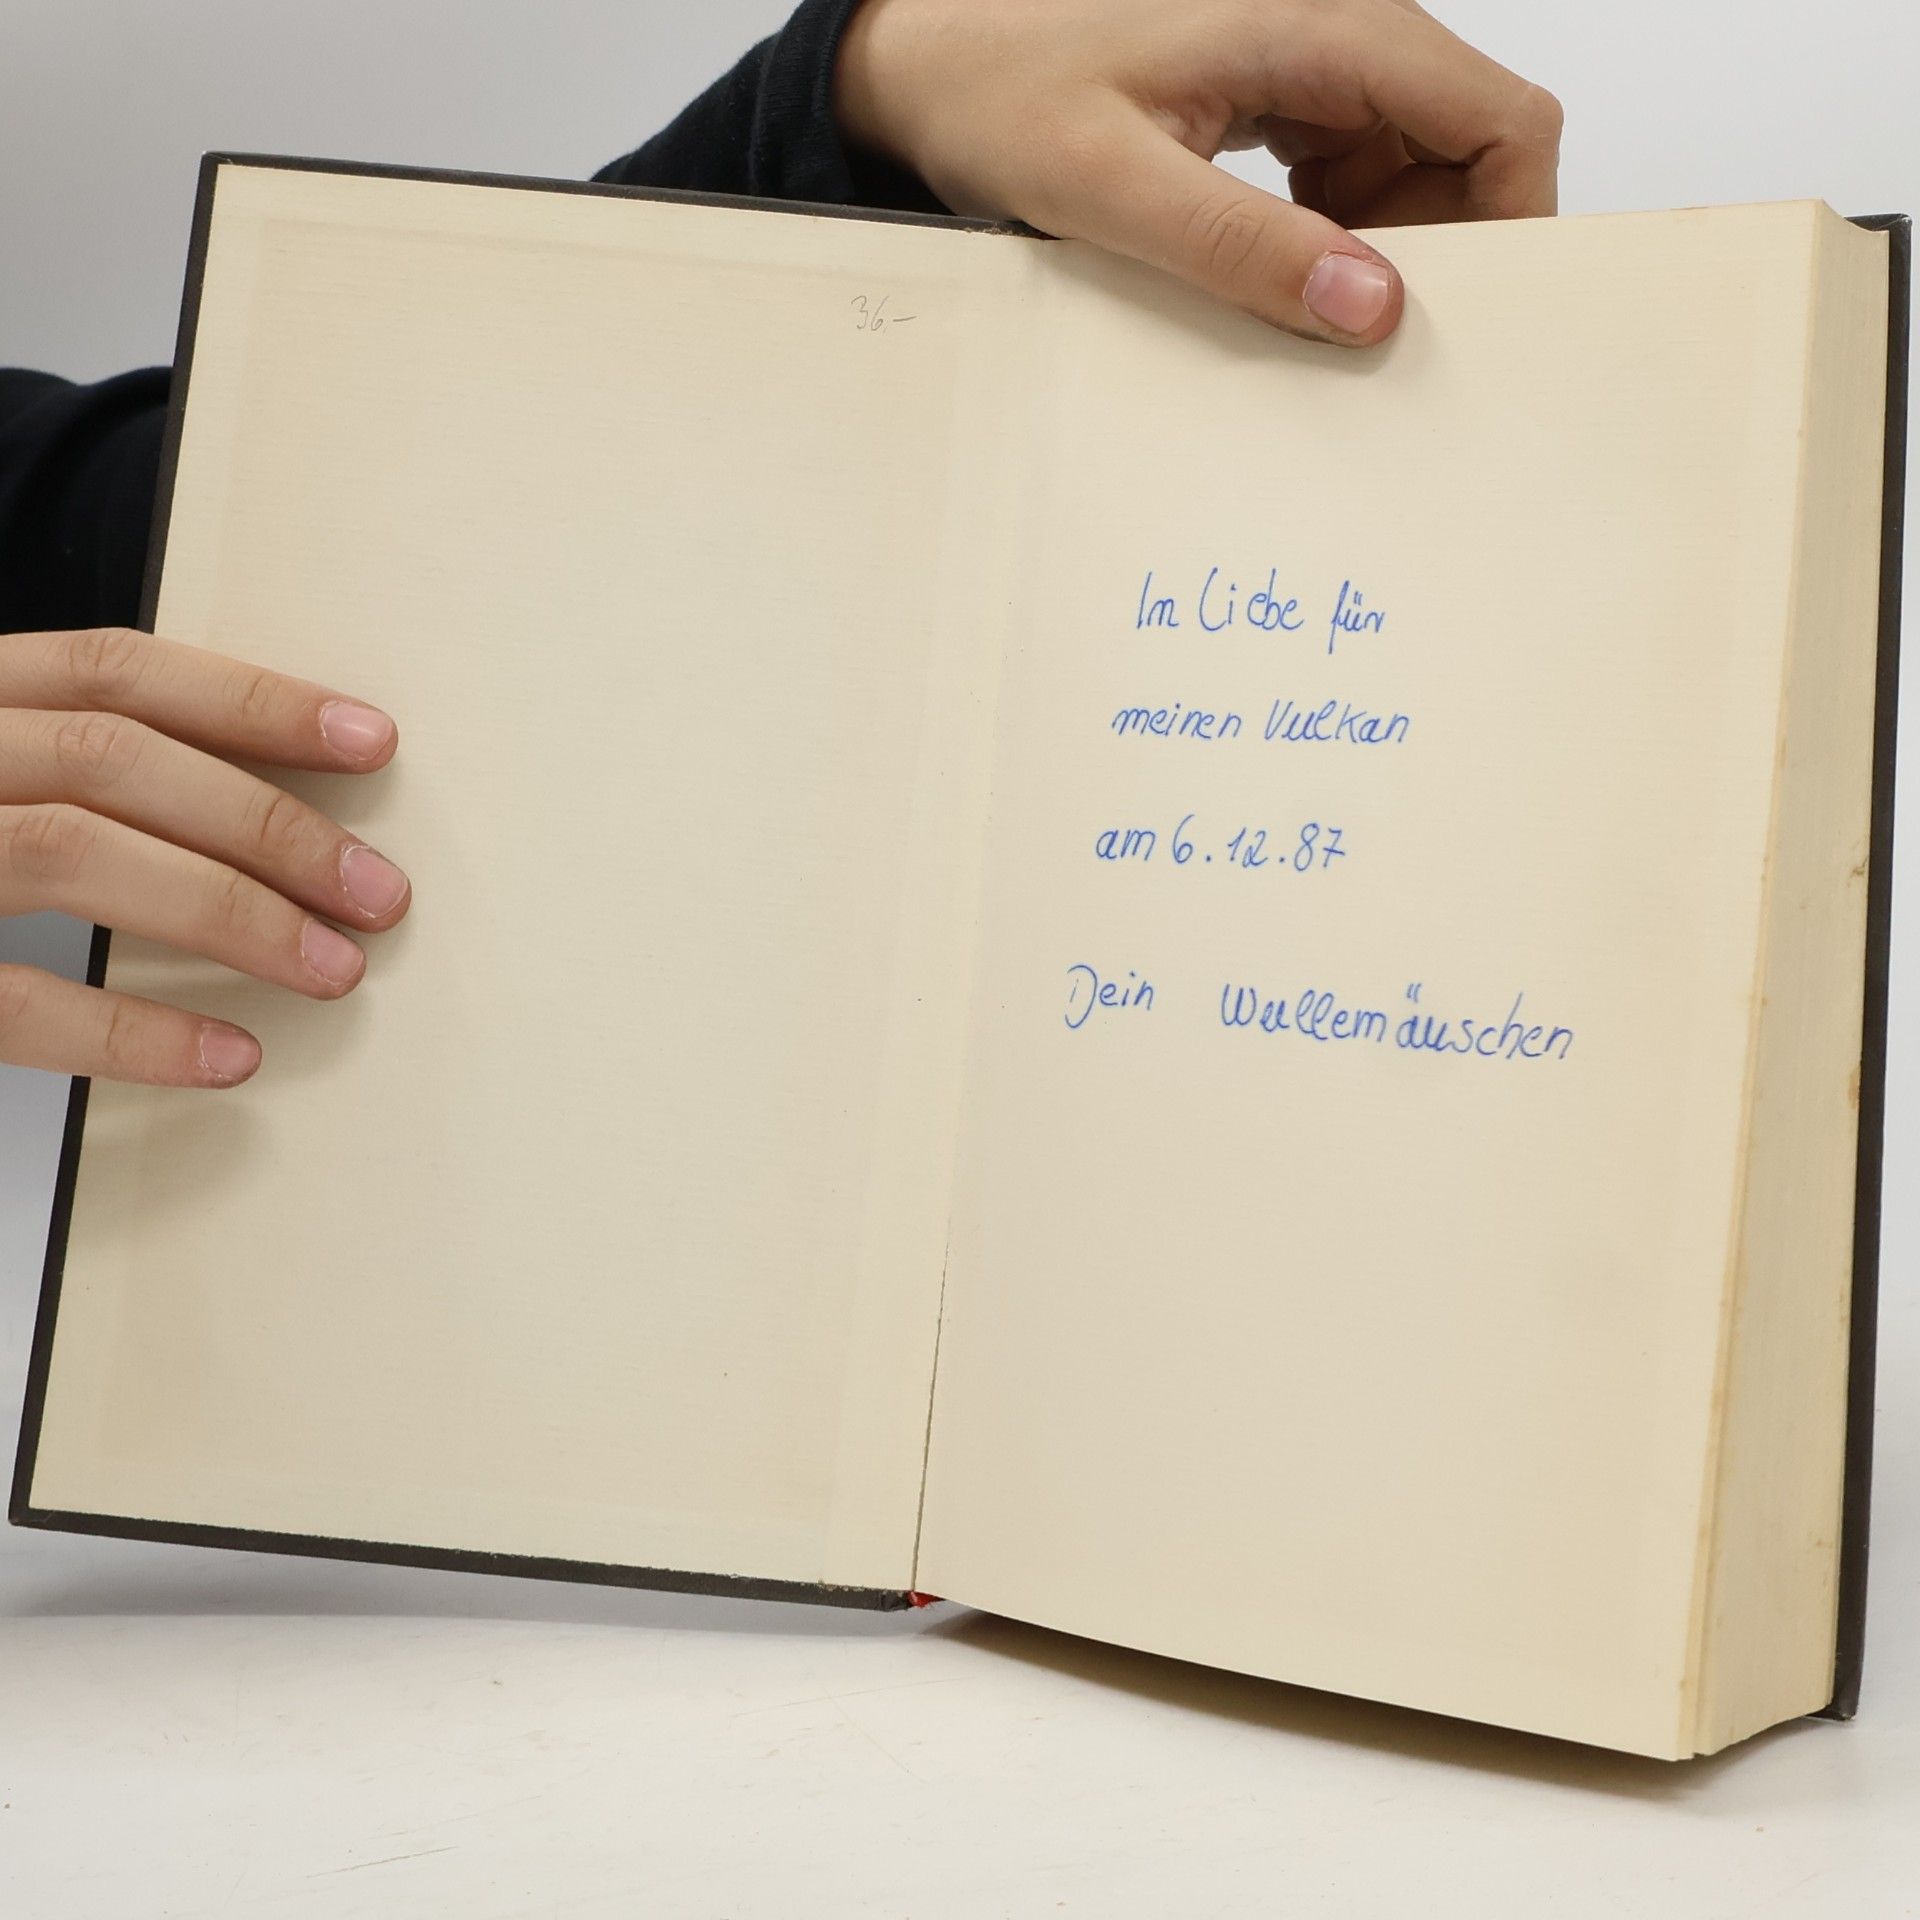 36,-
In Liebe für
meinen Vulkan
am 6.12.87
Dein Wullemäuschen